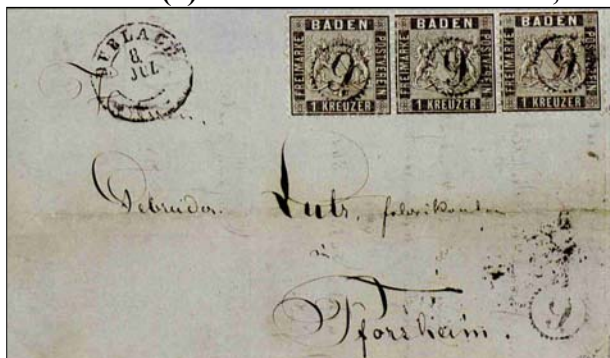 DURLACH
8
JUL
BADEN
FREIMARKE
POSTVEREIN
1 KREUZER
BADEN
FREIMARKE
POSTVEREIN
1 KREUZER
BADEN
FREIMARKE
POSTVEREIN
1 KREUZER
Gebrüder. Lutz, fabrikanten
Pforzheim.